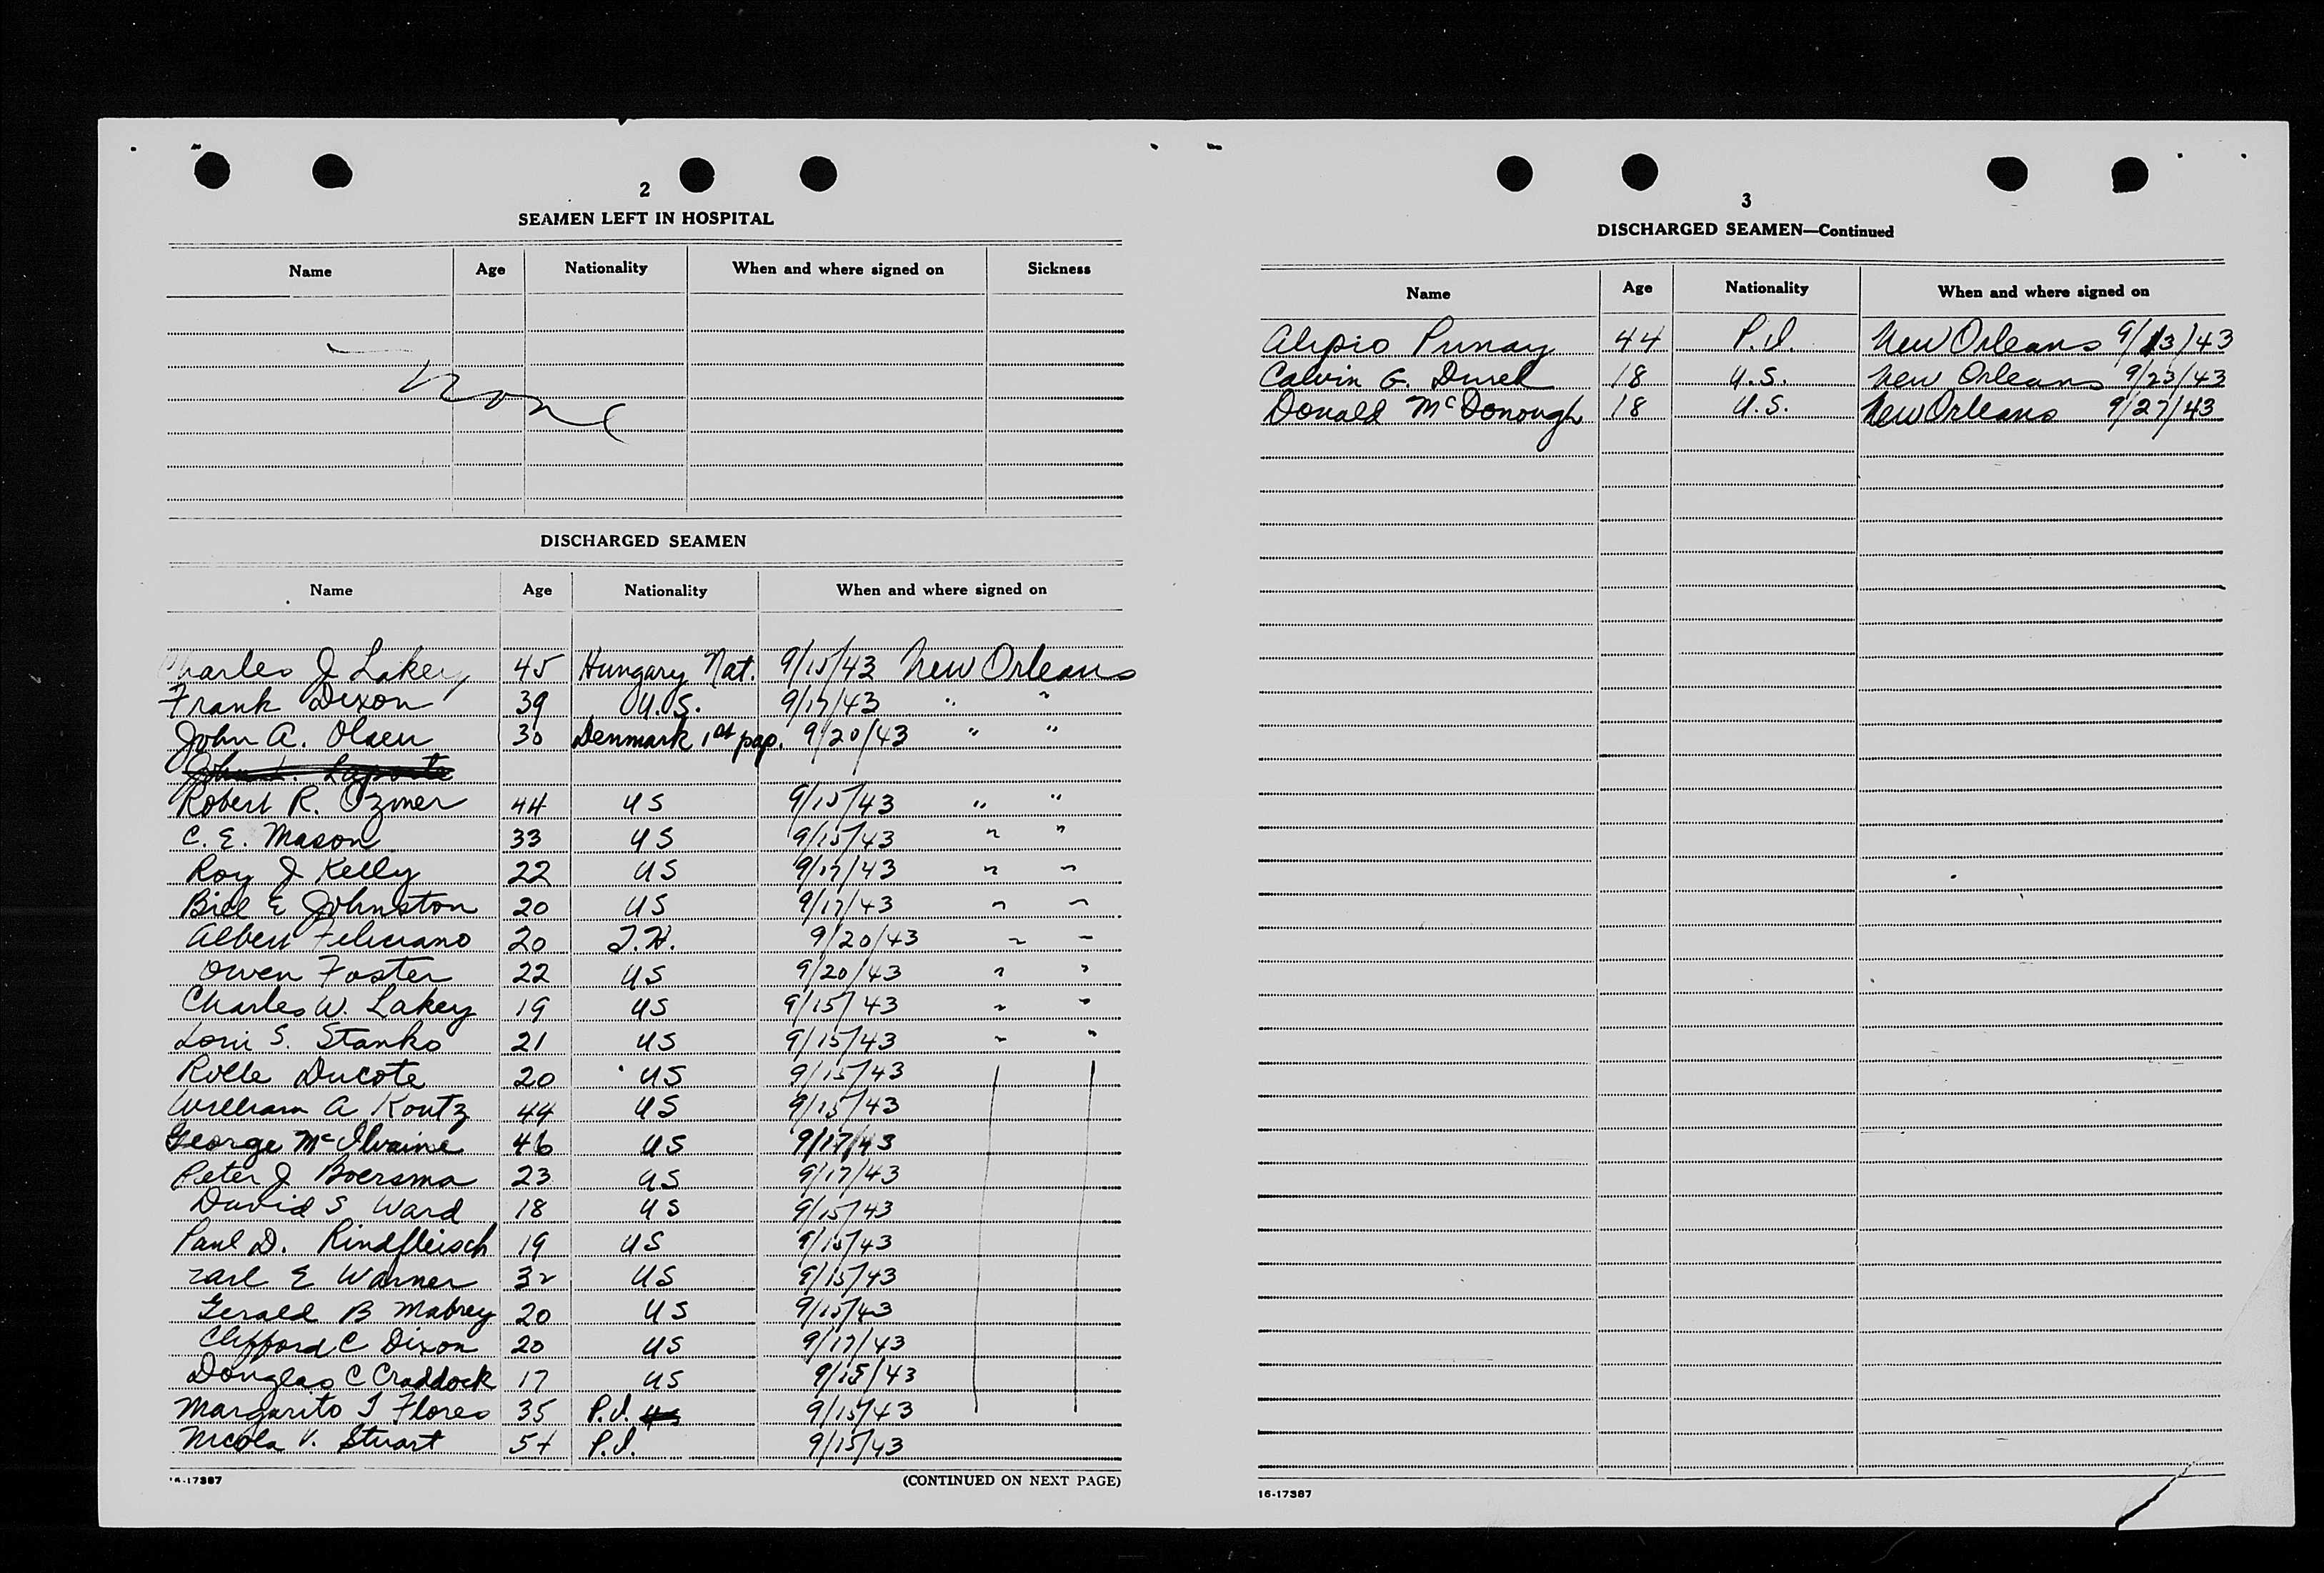 2
SEAMEN LEFT IN HOSPITAL
Name Age Nationality When and where signed on Sickness
None
DISCHARGED SEAMEN
Name Age Nationality When and where signed on
Charles J Lakey 45 Hungary Nat. 9/15/43 New Orleans
Frank Dixon 39 U.S. 9/17/43 " "
John A. Olsen 30 Denmark 1st pap. 9/20/43 " "
John L. Laporte
Robert R. Ozmer 44 US 9/15/43 " "
C. E. Mason 33 US 9/15/43 " "
Roy J Kelly 22 US 9/17/43 " "
Bill E Johnston 20 US 9/17/43 " "
Albert Feliciano 20 T.H. 9/20/43 " "
Owen Foster 22 US 9/20/43 " "
Charles W. Lakey 19 US 9/15/43 " "
Loni S. Stanko 21 US 9/15/43 " "
Rolle Ducote 20 US 9/15/43
William A Koutz 44 US 9/15/43
George McIlvaine 46 US 9/17/43
Peter J Boersma 23 US 9/17/43
David S Ward 18 US 9/15/43
Paul D. Rindfleisch 19 US 9/15/43
Earl E Warner 32 US 9/15/43
Gerald B Mabrey 20 US 9/15/43
Clifford C Dixon 20 US 9/17/43
Douglas C Craddock 17 US 9/15/43
Margarito T Flores 35 P.I. US 9/15/43
Nicola V. Stuart 54 P.I. 9/15/43
16-17387
(CONTINUED ON NEXT PAGE)
3
DISCHARGED SEAMEN—Continued
Name Age Nationality When and where signed on
Alipio Punay 44 P.I. New Orleans 9/23/43
Calvin G. Dusek 18 U.S. New Orleans 9/23/43
Donald McDonough 18 U.S. New Orleans 9/27/43
16-17387